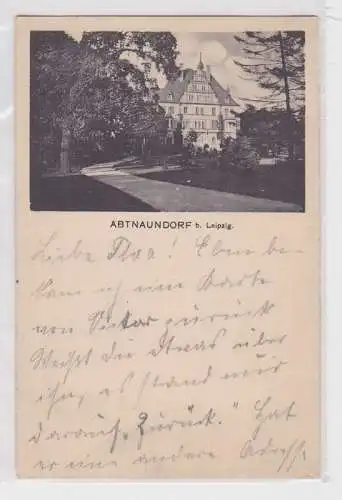 ABTNAUNDORF b. Leipzig.
Liebe ! Eben be-
kam ich eine Karte
von zurück
Weißt du etwas über
ihn, es stand nur
darauf „Zurück." Hat
er eine andere Adresse